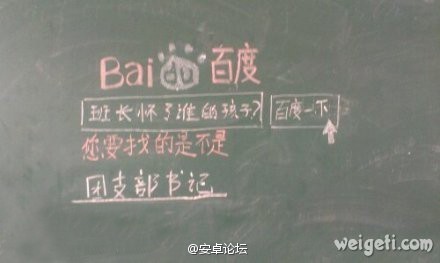 Bai du 百度
班长怀了谁的孩子? 百度一下
您要找的是不是
团支部书记
@安卓论坛
weigeti.com